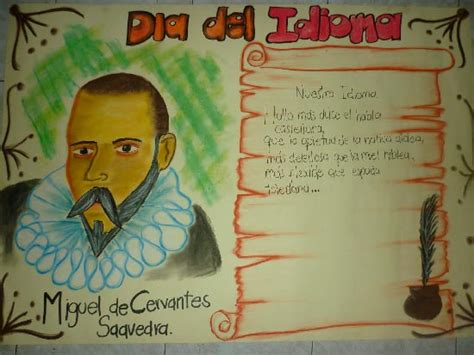 Dia del Idioma
Nuestro Idioma
Hallo más dulce el habla
castellana,
que la quietud de la nativa aldea,
más deleitosa que la miel hiblea,
más flexible que espada
toledana...
Miguel de Cervantes
Saavedra.